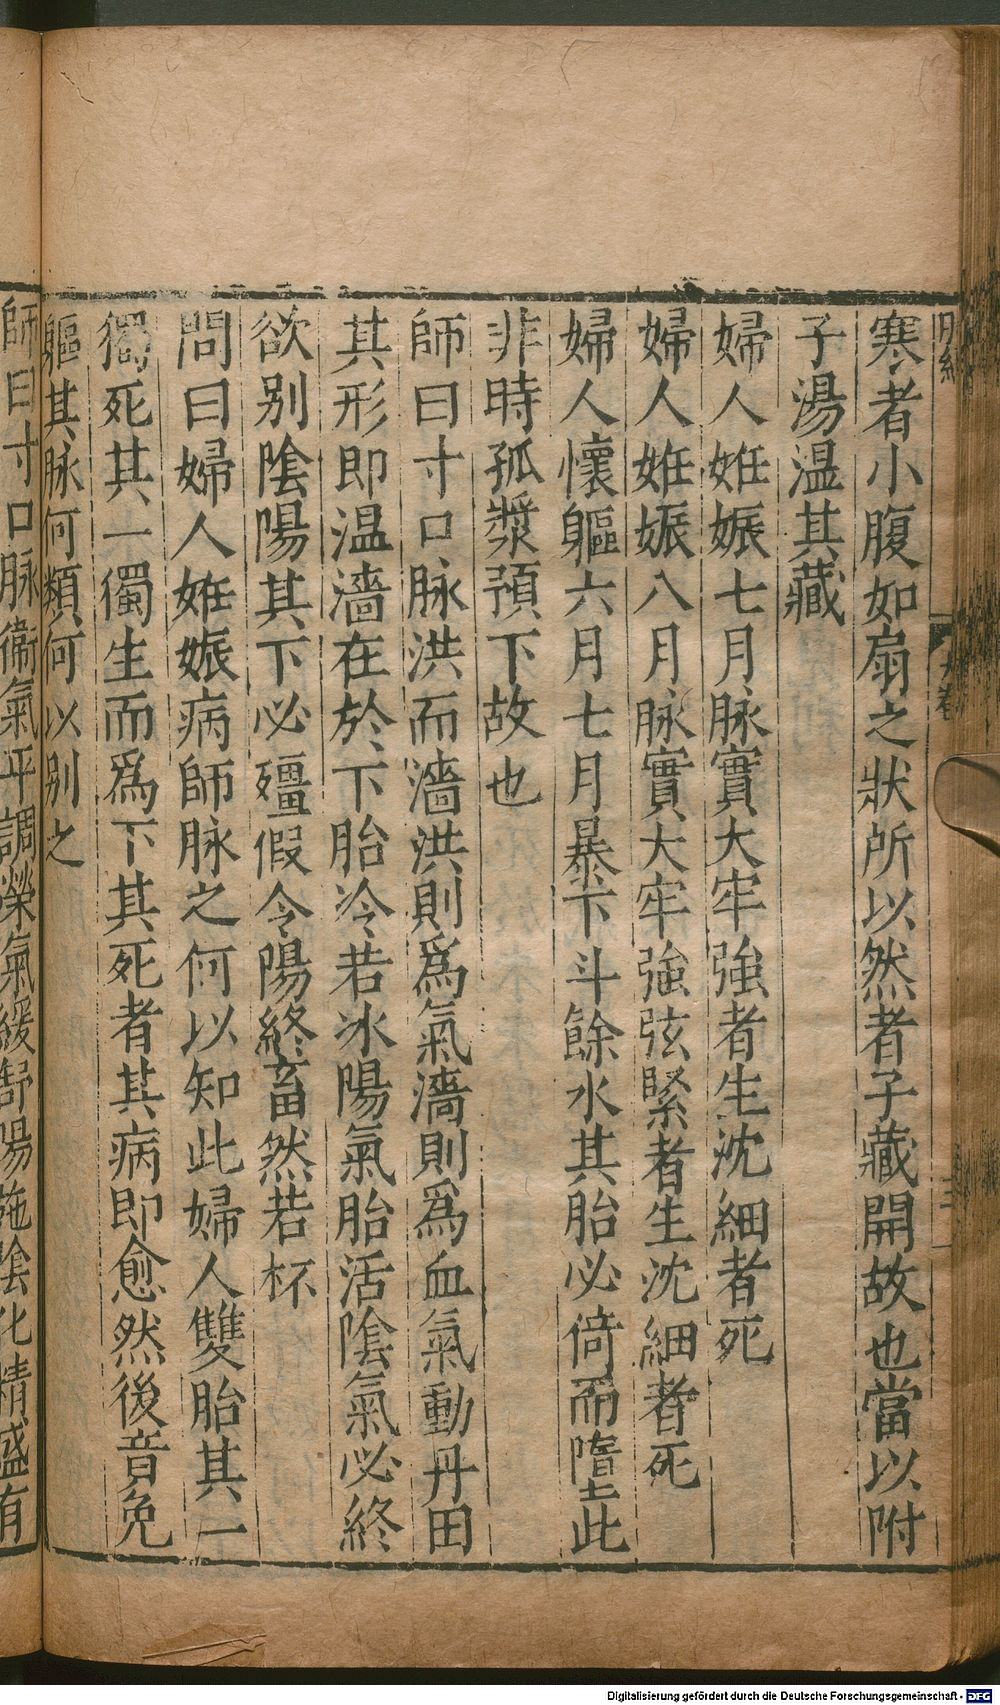 寒者小腹如扇之狀所以然者子藏開故也當以附
子湯温其藏
婦人姙娠七月脉實大牢強者生沈細者死
婦人姙娠八月脉實大牢強弦緊者生沈細者死
婦人懷軀六月七月暴下斗餘水其胎必倚而墮此
非時孤漿預下故也
師曰寸口脉洪而濇洪則爲氣濇則爲血氣動丹田
其形即温濇在於下胎冷若冰陽氣胎活陰氣必終
欲别陰陽其下必殭假令陽終畜然若杯
問曰婦人姙娠病師脉之何以知此婦人雙胎其一
獨死其一獨生而爲下其死者其病即愈然後音免
軀其脉何類何以别之
師曰寸口脉衞氣平調榮氣緩舒陽施陰化精盛有
Digitalisierung gefördert durch die Deutsche Forschungsgemeinschaft - DFG